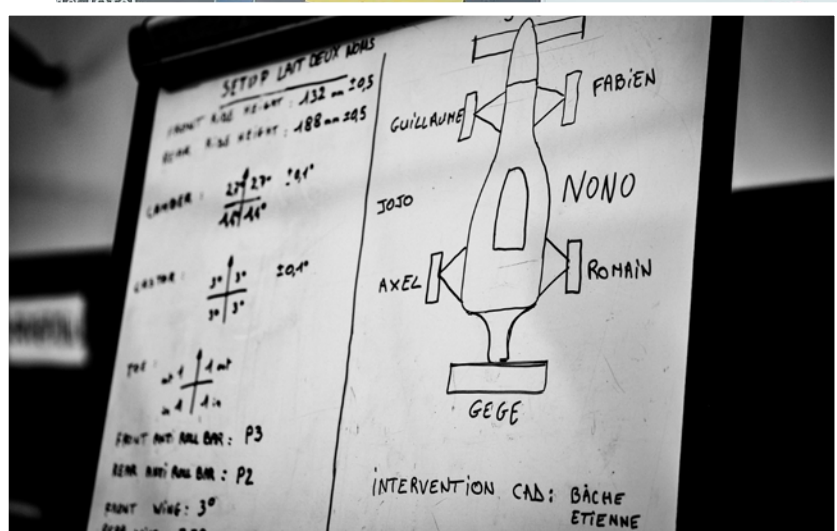 SETUP LAIT DEUX NOMS
FRONT RIDE HEIGHT : 132 mm ±0,5
REAR RIDE HEIGHT : 188 mm ±0,5
CAMBER :
2,7° 2,7° ±0,1°
CASTOR :
3° 3° ±0,1°
3° 3°
TOE :
out 1 1 out
in 1 1 in
FRONT ANTI ROLL BAR : P3
REAR ANTI ROLL BAR : P2
FRONT WING : 3°
GUILLAUME
FABIEN
JOJO
NONO
AXEL
ROMAIN
GEGE
INTERVENTION CAD : BÂCHE
ETIENNE